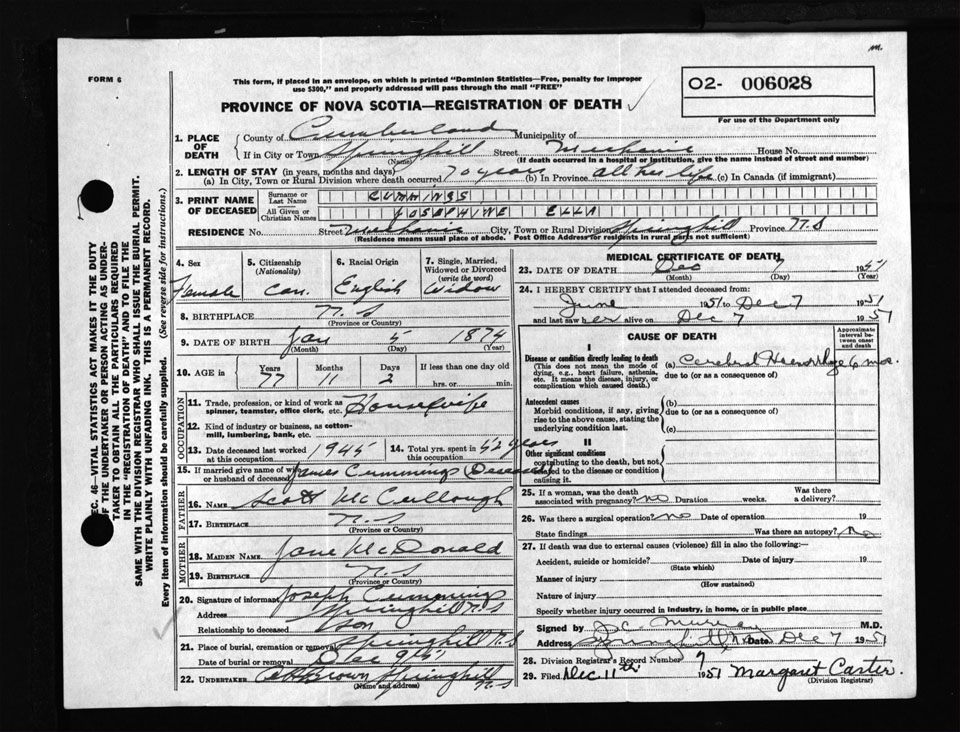 M.
FORM 6
This form, if placed in an envelope, on which is printed "Dominion Statistics—Free, penalty for improper
use $300," and properly addressed will pass through the mail "FREE"
O2- 006028
For use of the Department only
PROVINCE OF NOVA SCOTIA—REGISTRATION OF DEATH
1. PLACE OF DEATH County of Cumberland Municipality of
If in City or Town Springhill Street Mechanic House No.
(Name) (If death occurred in a hospital or institution, give the name instead of street and number)
2. LENGTH OF STAY (in years, months and days)
(a) In City, Town or Rural Division where death occurred 70 years (b) In Province all her life (c) In Canada (if immigrant)
3. PRINT NAME OF DECEASED Surname or Last Name CUMMINGS
All Given or Christian Names JOSEPHINE ELLA
RESIDENCE No. Street Mechanic City, Town or Rural Division Springhill Province N.S
(Residence means usual place of abode. Post Office Address for residents in rural parts not sufficient)
4. Sex Female
5. Citizenship (Nationality) Can.
6. Racial Origin English
7. Single, Married, Widowed or Divorced (write the word) Widow
8. BIRTHPLACE N. S
(Province or Country)
9. DATE OF BIRTH Jan 5 1874
(Month) (Day) (Year)
10. AGE Years 77 Months 11 Days 2 If less than one day hrs. or min.
OCCUPATION
11. Trade, profession, or kind of work as spinner, teamster, office clerk, etc. Housewife
12. Kind of industry or business, as cotton-mill, lumbering, bank, etc.
13. Date deceased last worked at this occupation 1945
14. Total yrs. spent in this occupation 52 years
15. If married give name of wife or husband of deceased James Cummings Deceased
FATHER
16. NAME Scott McCullough
17. BIRTHPLACE N. S
(Province or Country)
MOTHER
18. MAIDEN NAME Jane McDonald
19. BIRTHPLACE N. S
(Province or Country)
20. Signature of informant Joseph Cummings
Address Springhill N S
Relationship to deceased Son
21. Place of burial, cremation or removal Springhill N. S
Date of burial or removal Dec 9
22. UNDERTAKER Brown Springhill
(Name and address) N S
MEDICAL CERTIFICATE OF DEATH
23. DATE OF DEATH Dec 7 1951
(Month) (Day) (Year)
24. I HEREBY CERTIFY that I attended deceased from:
June 1951 to Dec 7 1951
and last saw her alive on Dec 7 1951
CAUSE OF DEATH
Approximate interval between onset and death
I
Disease or condition directly leading to death (a) Cerebral Haemorrhage 6 mos.
(This does not mean the mode of dying, e.g., heart failure, asthenia, etc. It means the disease, injury, or complication which caused death.)
due to (or as a consequence of)
Antecedent causes (b)
Morbid conditions, if any, giving rise to the above cause, stating the underlying condition last.
due to (or as a consequence of)
(c)
II
Other significant conditions
contributing to the death, but not related to the disease or condition causing it.
25. If a woman, was the death associated with pregnancy? no Duration weeks. Was there a delivery?
26. Was there a surgical operation? no Date of operation 19
State findings Was there an autopsy? No
27. If death was due to external causes (violence) fill in also the following:—
Accident, suicide or homicide? Date of injury 19
(State which)
Manner of injury
(How sustained)
Nature of injury
Specify whether injury occurred in industry, in home, or in public place
Signed by J C Murray M.D.
Address Springhill Date Dec 7 1951
28. Division Registrar's Record Number
29. Filed Dec 11th 1951 Margaret Carter.
(Division Registrar)
SEC. 46—VITAL STATISTICS ACT MAKES IT THE DUTY
OF THE UNDERTAKER OR PERSON ACTING AS UNDER-
TAKER TO OBTAIN ALL THE PARTICULARS REQUIRED
IN THE "REGISTRATION OF DEATH" AND TO FILE THE
SAME WITH THE DIVISION REGISTRAR WHO SHALL ISSUE THE BURIAL PERMIT.
WRITE PLAINLY WITH UNFADING INK. THIS IS A PERMANENT RECORD.
Every item of information should be carefully supplied. (See reverse side for instructions.)